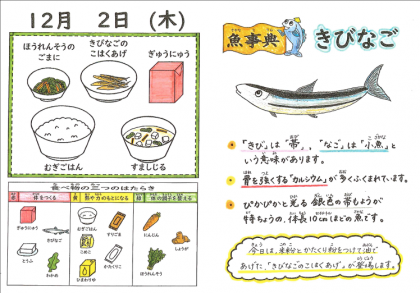 12月 2日 (木)
ほうれんそうの
ごまに
きびなごの
こはくあげ
ぎゅうにゅう
むぎごはん
すましじる
食べ物の三つのはたらき
赤 体をつくる
黄 熱や力のもとになる
緑 体の調子を整える
ぎゅうにゅう
きびなご
とうふ
わかめ
むぎごはん
こめこ
ひまわりゆ
すりごま
かたくりこ
にんじん
ほうれんそう
しょうが
魚事典
きびなご
「きび」は“帯”、“なご”は「小魚」と
いう意味があります。
骨を強くする“カルシウム”が多くふくまれています。
ぴかぴかと光る銀色の帯もようが
特ちょうの、体長10cmほどの魚です。
今日は、米粉とかたくり粉をつけて油で
あげた、「きびなごのこはくあげ」が登場します。